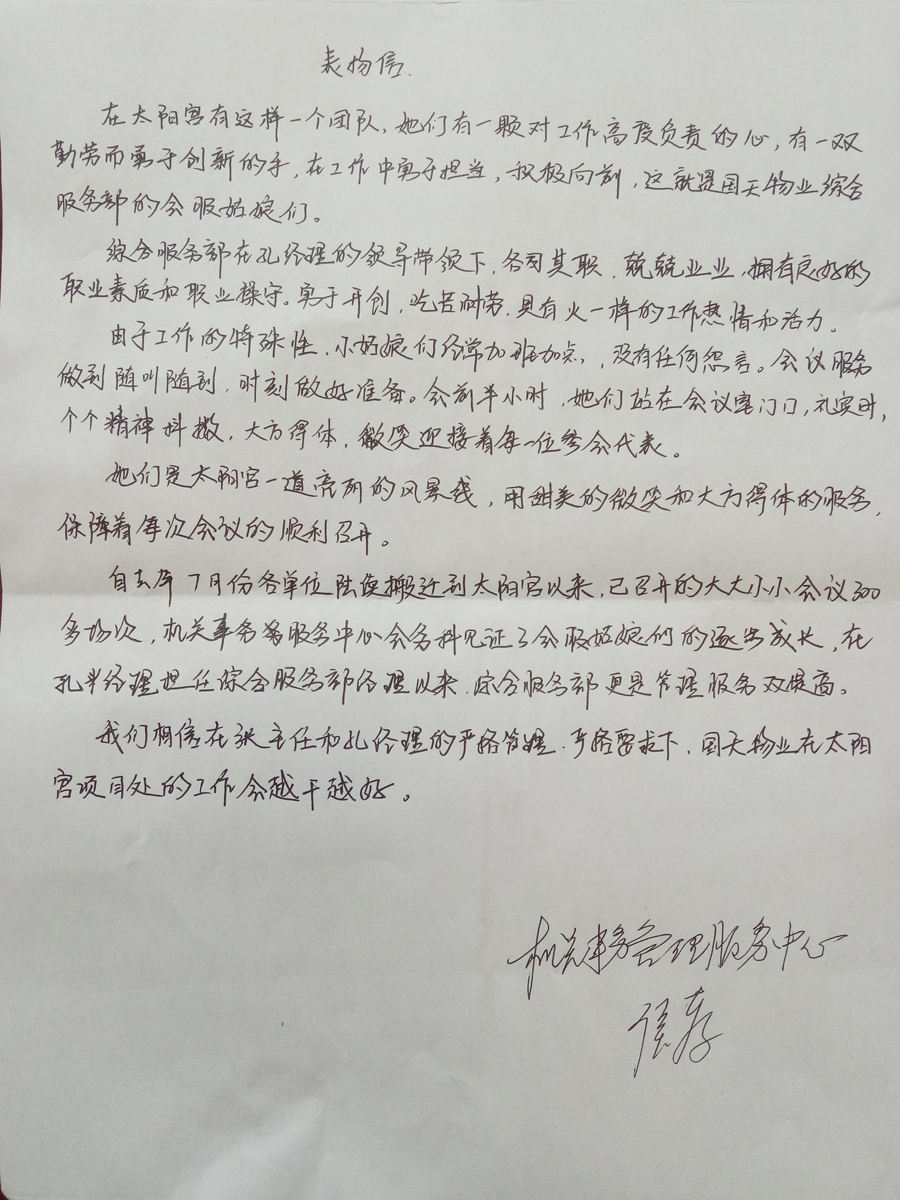 表扬信.
在太阳宫有这样一个团队,她们有一颗对工作高度负责的心,有一双
勤劳而勇于创新的手,在工作中勇于担当,积极向前,这就是国天物业综合
服务部的会服姑娘们。
综合服务部在孔经理的领导带领下,各司其职,兢兢业业,拥有良好的
职业素质和职业操守。勇于开创,吃苦耐劳,具有火一样的工作热情和活力。
由于工作的特殊性,小姑娘们经常加班加点,没有任何怨言。会议服务
做到随叫随到,时刻做好准备。会前半小时,她们站在会议室门口,礼宾时,
个个精神抖擞,大方得体,微笑迎接着每一位参会代表。
她们是太阳宫一道亮丽的风景线,用甜美的微笑和大方得体的服务,
保障着每次会议的顺利召开。
自去年7月份各单位陆续搬迁到太阳宫以来,已召开的大大小小会议300
多场次,机关事务服务中心会务科见证了会服姑娘们的逐步成长,在
孔经理担任综合服务部经理以来,综合服务部更是管理服务双提高。
我们相信在张主任和孔经理的严格管理,严格要求下,国天物业在太阳
宫项目处的工作会越干越好。
机关事务管理服务中心